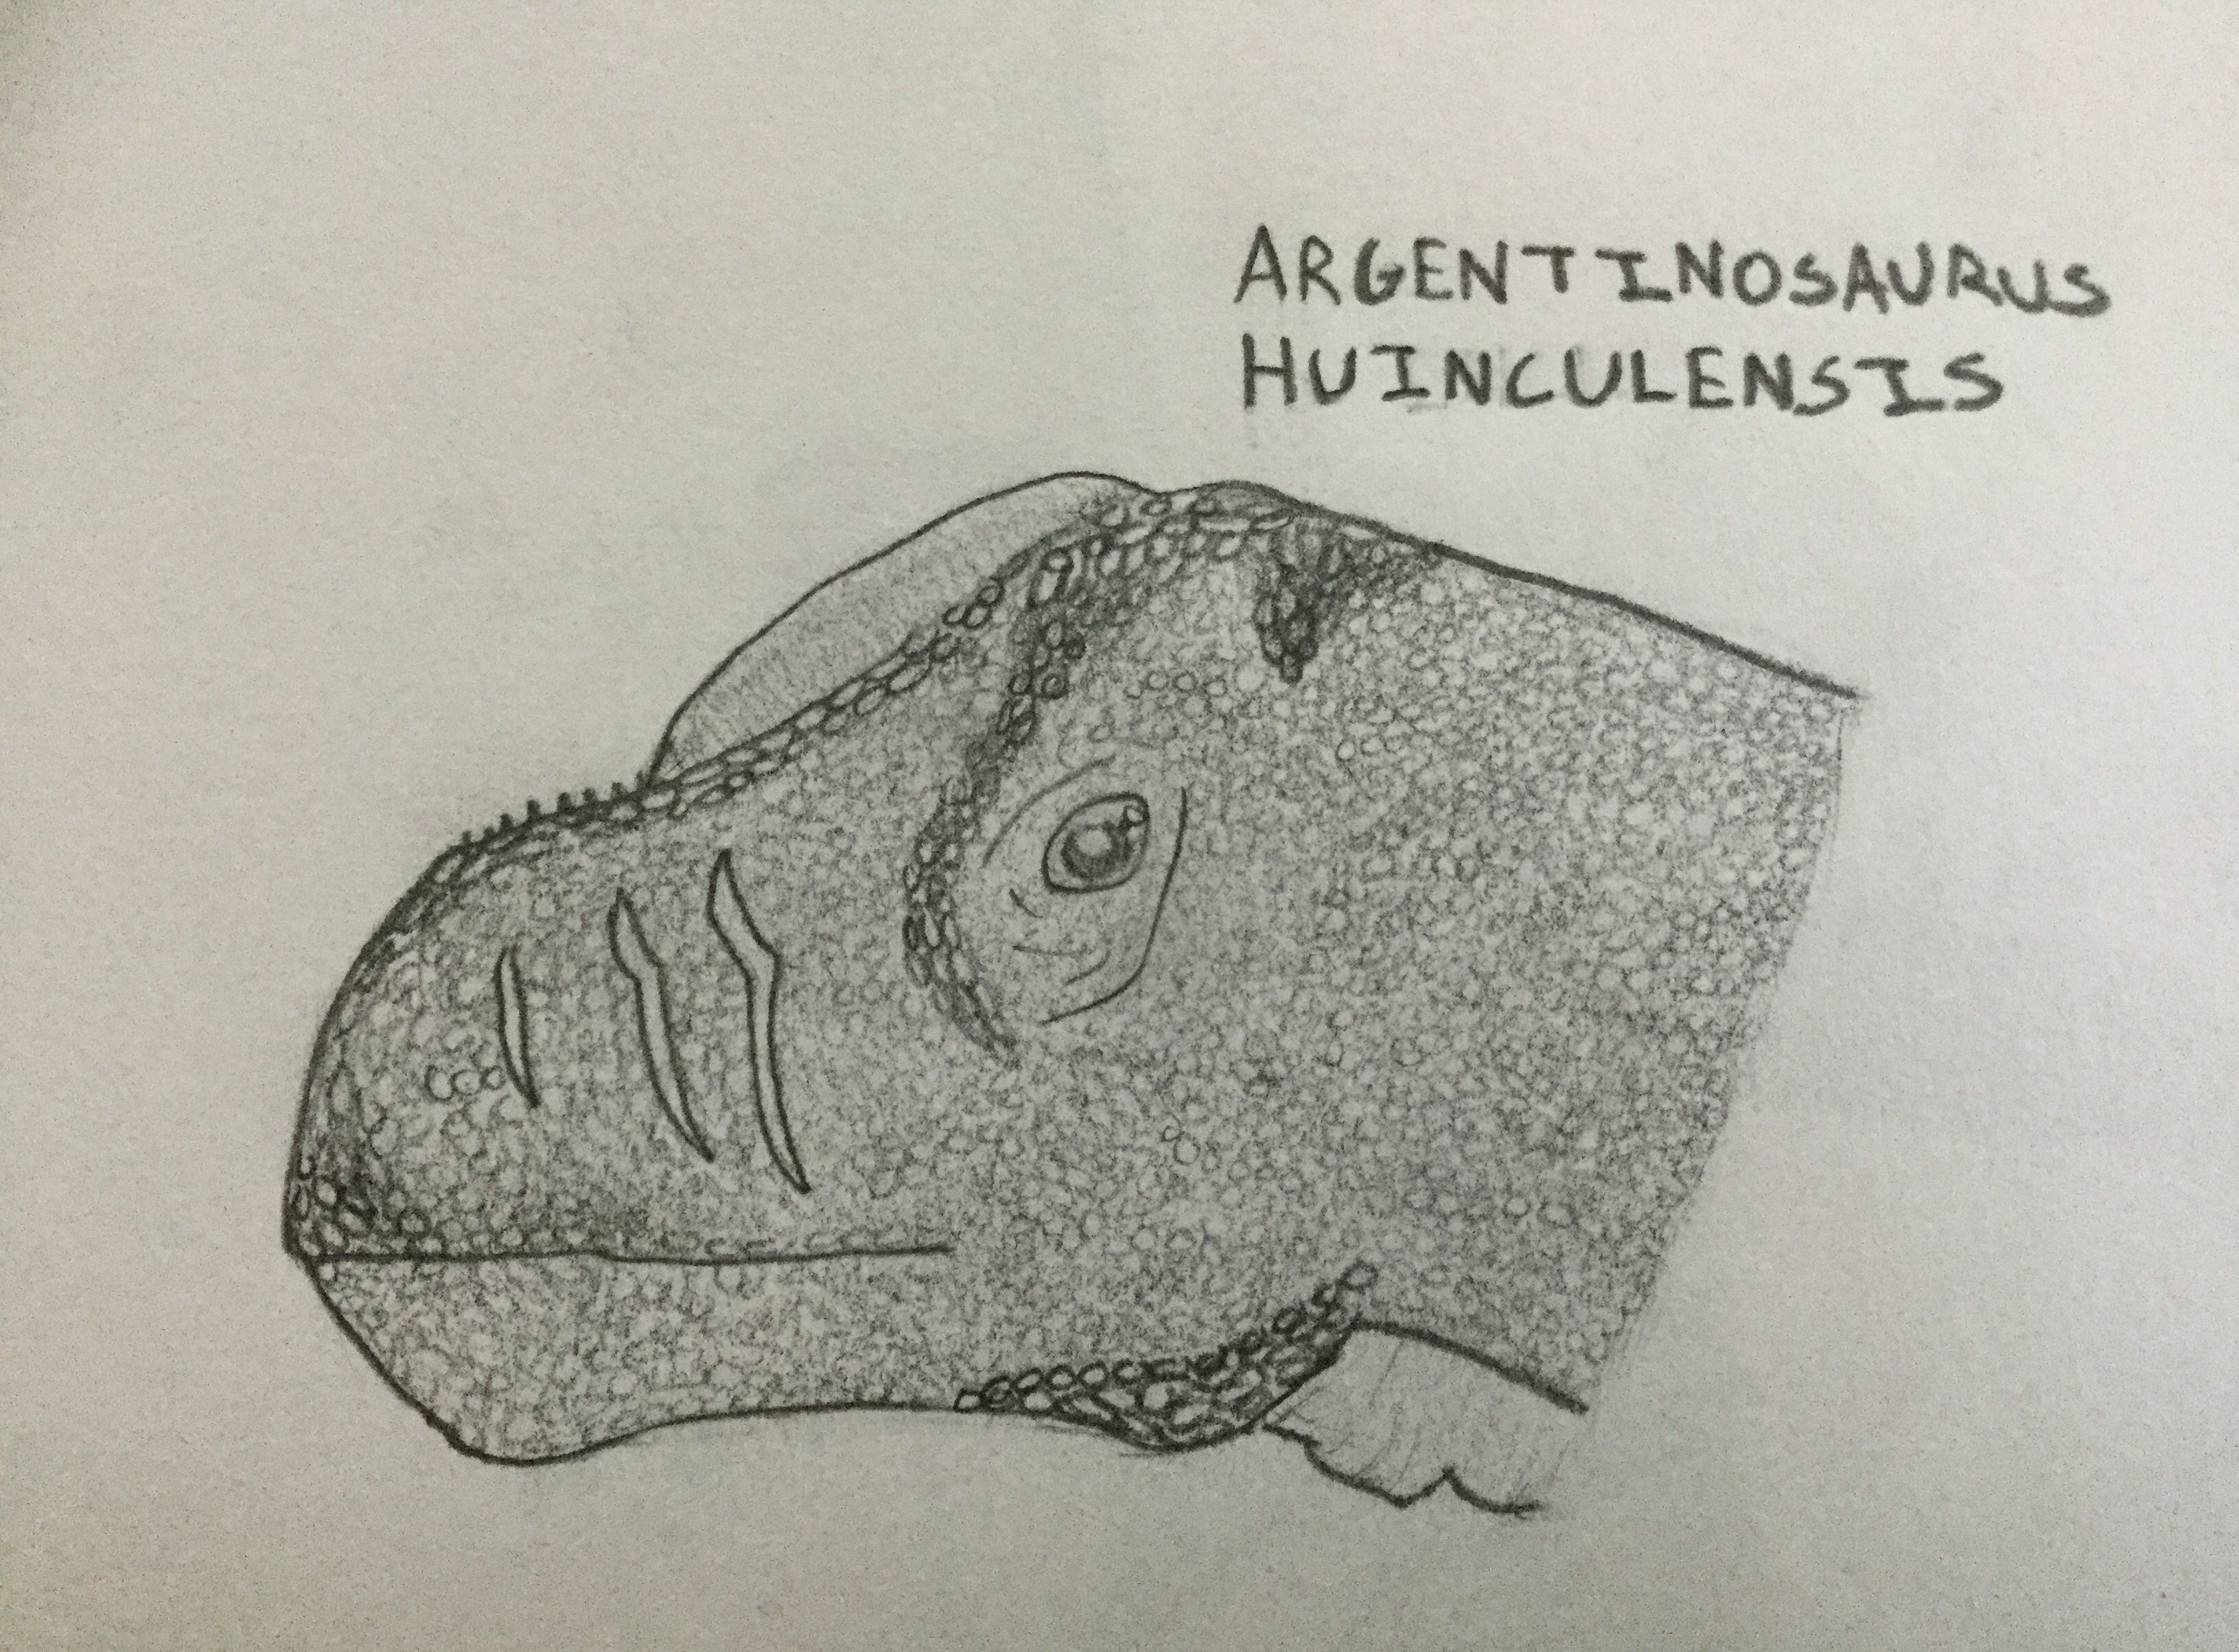 ARGENTINOSAURUS
HUINCULENSIS